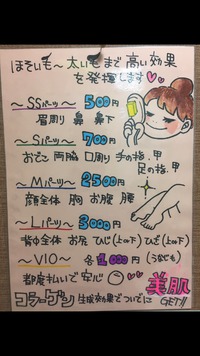 ほそいモ〜太いモまで高い効果
を発揮します♡♡
〜SSパーツ〜 500円
眉周り 鼻 鼻下
〜Sパーツ〜 700円
おでこ 両脇 口周り 手の指・甲
足の指・甲
〜Mパーツ〜 2500円
顔全体 胸 お腹 腰
〜Lパーツ〜 3000円
背中全体 お尻 ひじ(上or下) ひざ(上or下)
〜VIO〜 各1,000円 (うなじも)
都度払いで安心
美肌
コラーゲン生成効果でついでに GET!!